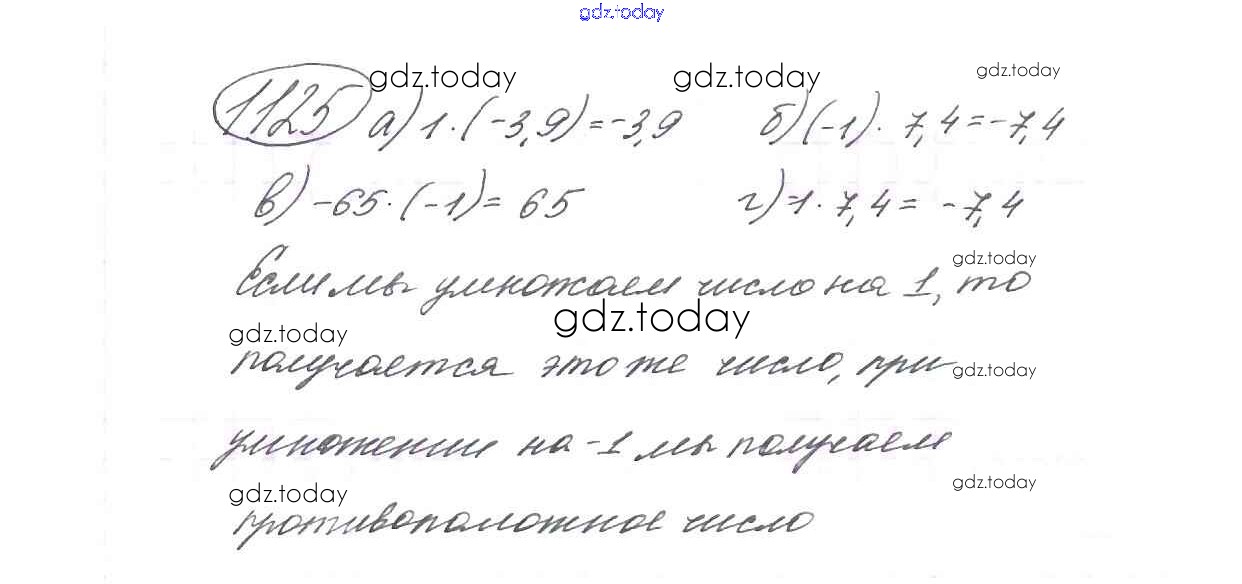 gdz.today
gdz.today gdz.today gdz.today
1125 а) 1·(-3,9)=-3,9 б) (-1)·7,4=-7,4
в) -65·(-1)=65 г) -1·7,4=-7,4
gdz.today
Если мы умножаем число на 1, то
gdz.today
gdz.today
получается это же число, при
gdz.today
умножении на -1 мы получаем
gdz.today
gdz.today
противоположное число